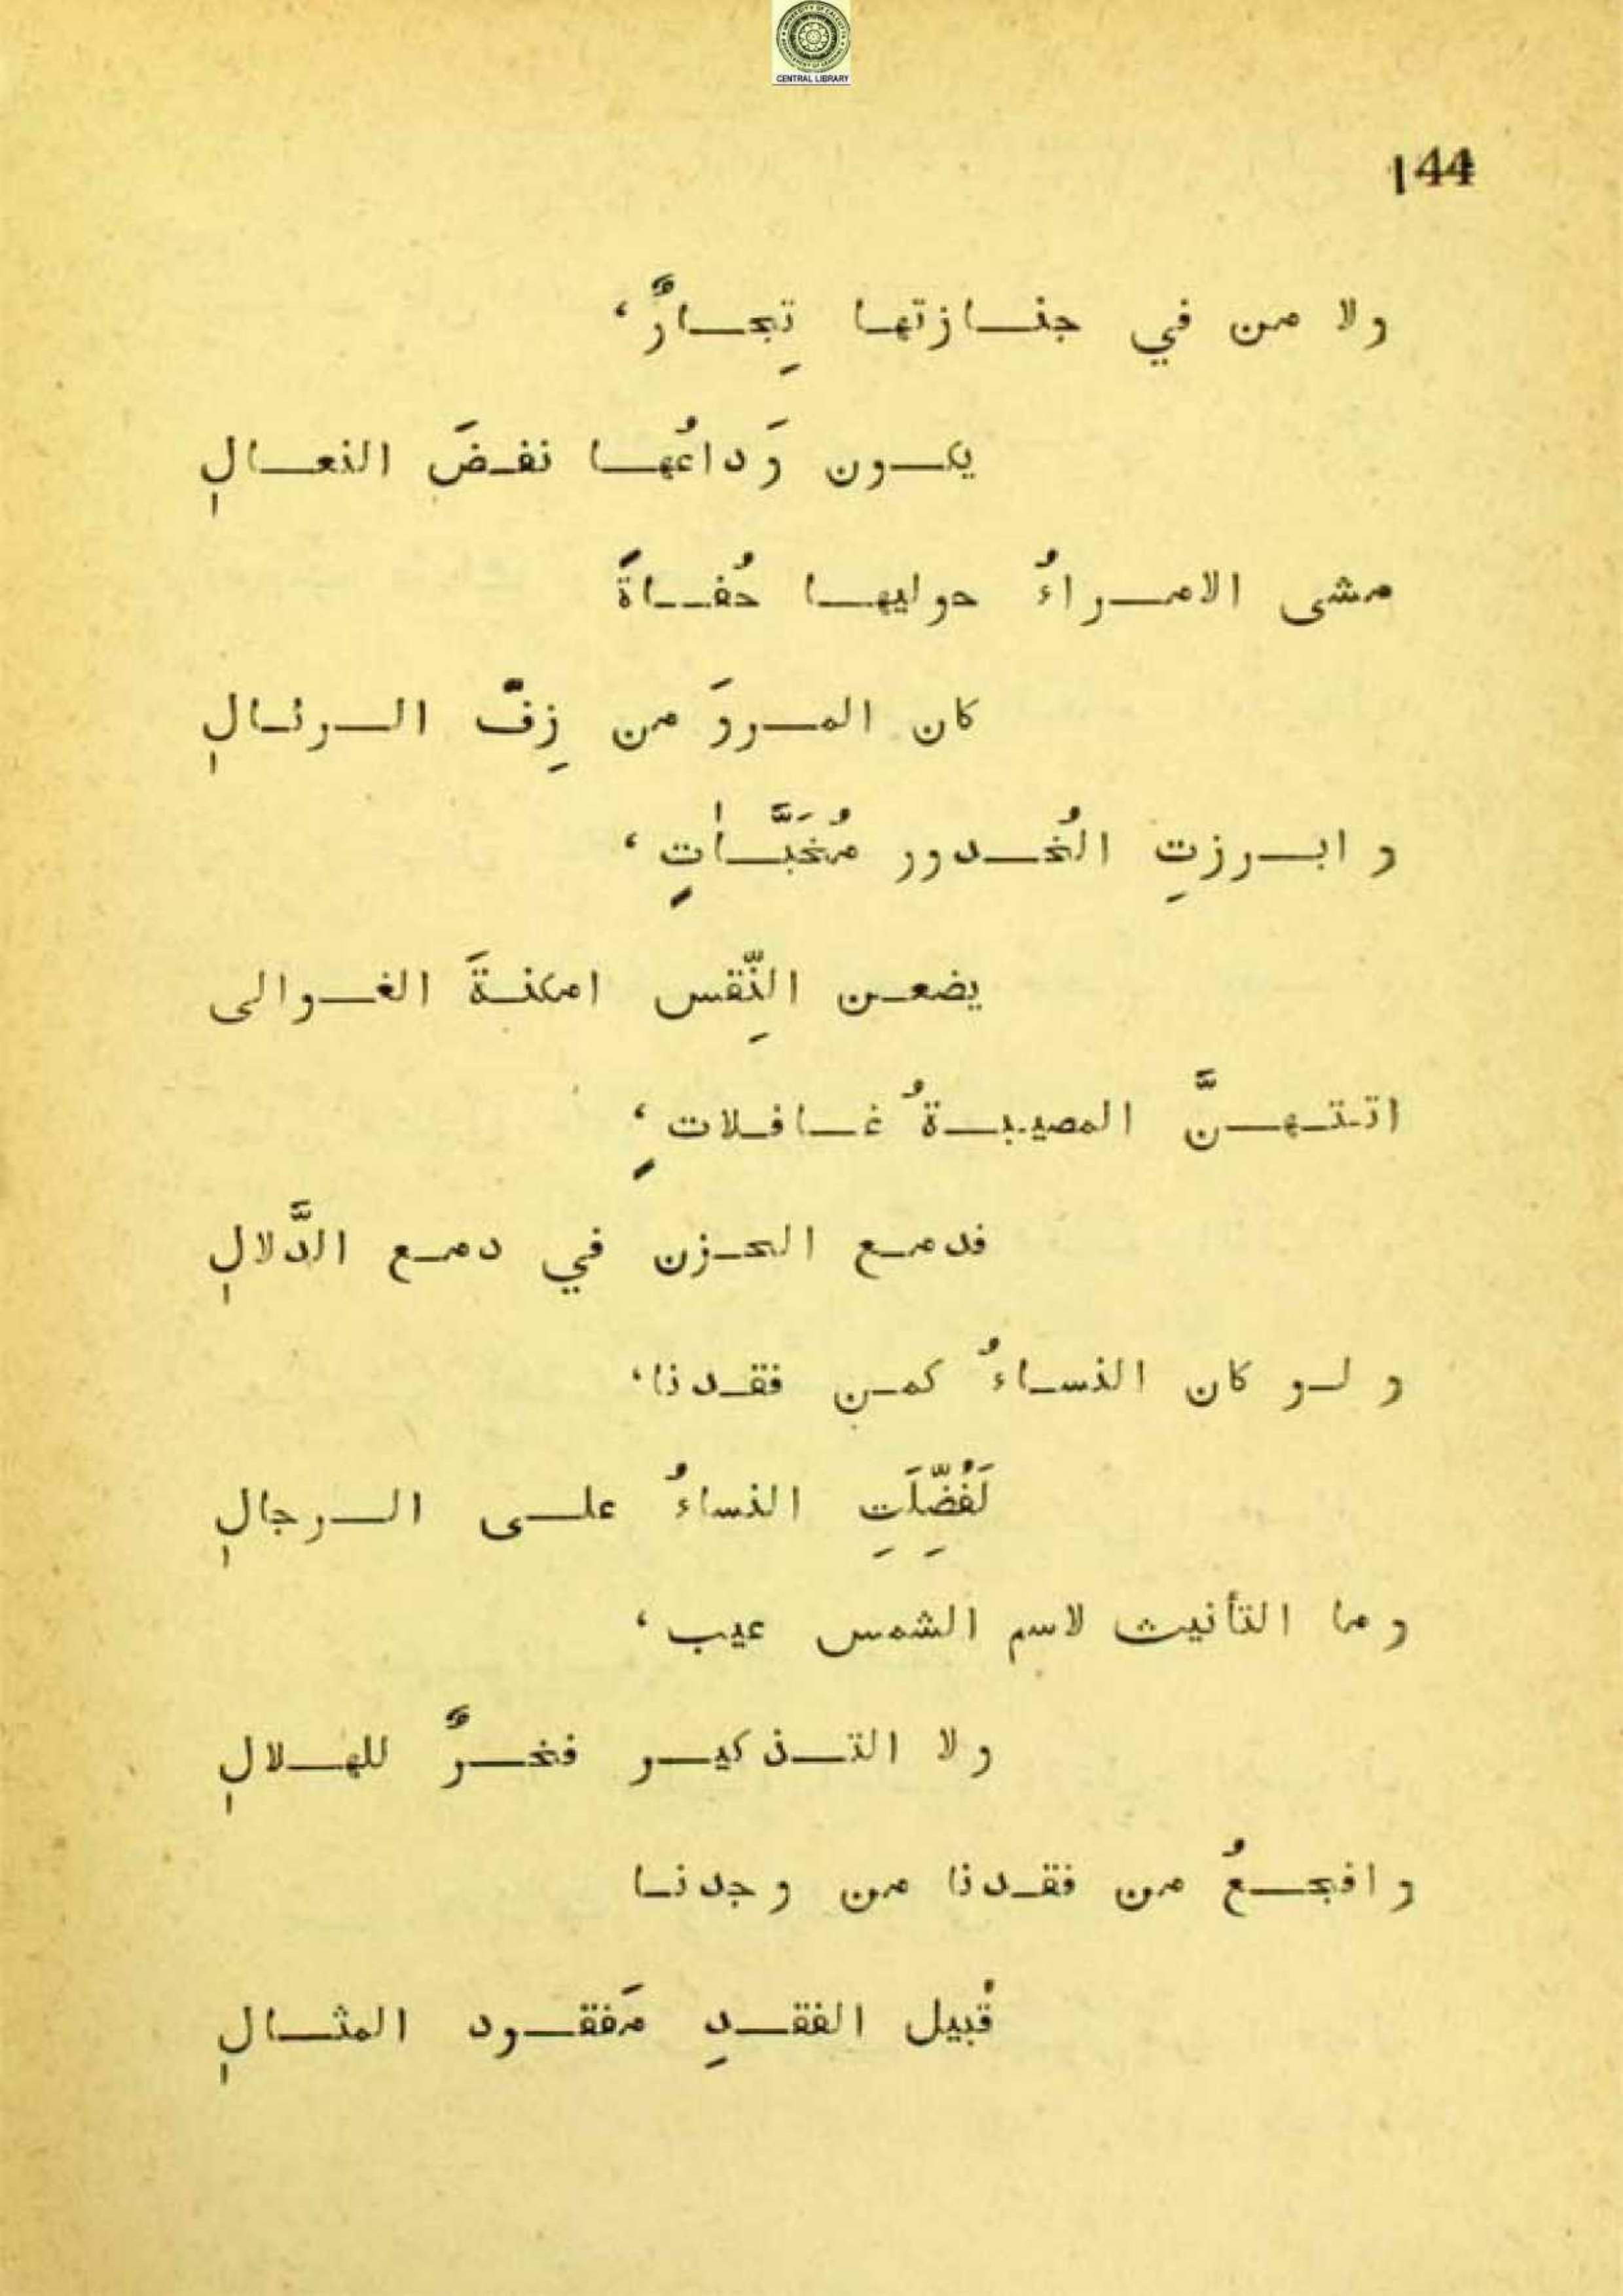 CENTRAL LIBRARY
144
ولا من في جنازتها تِجارٌ،
يكون وَداعُها نفضَ النعالِ
مشى الامراءُ حوليها حُفاةً
كان المروَ من زِفّ الرئالِ
و ابرزتِ الخُدور مُخَبَّاتٍ،
يضعن النِّقس امكنةَ الغوالى
اتتهنَّ المصيبةُ غافلاتٍ،
فدمع الحزن في دمع الدَّلالِ
و لو كان النساءُ كمن فقدنا،
لَفُضِّلَتِ النساءُ على الرجالِ
وما التأنيث لاسم الشمس عيب،
ولا التذكير فخرٌ للهلالِ
وافجعُ من فقدنا من وجدنا
قُبيل الفقدِ مَفقود المثالِ